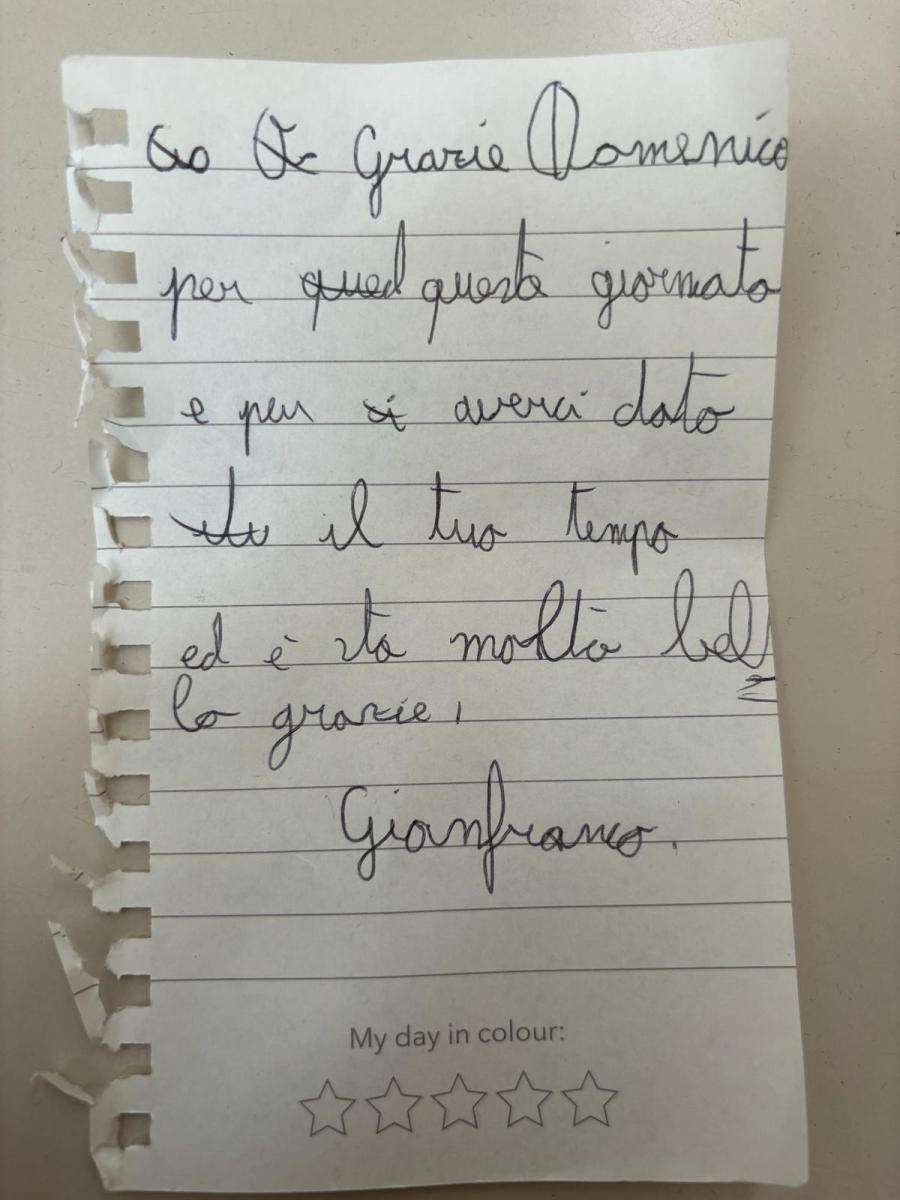 Grazie Domenico
per questa giornata
e per averci dato
il tuo tempo
ed è sta molto bel
lo grazie,
Gianfranco.
My day in colour: